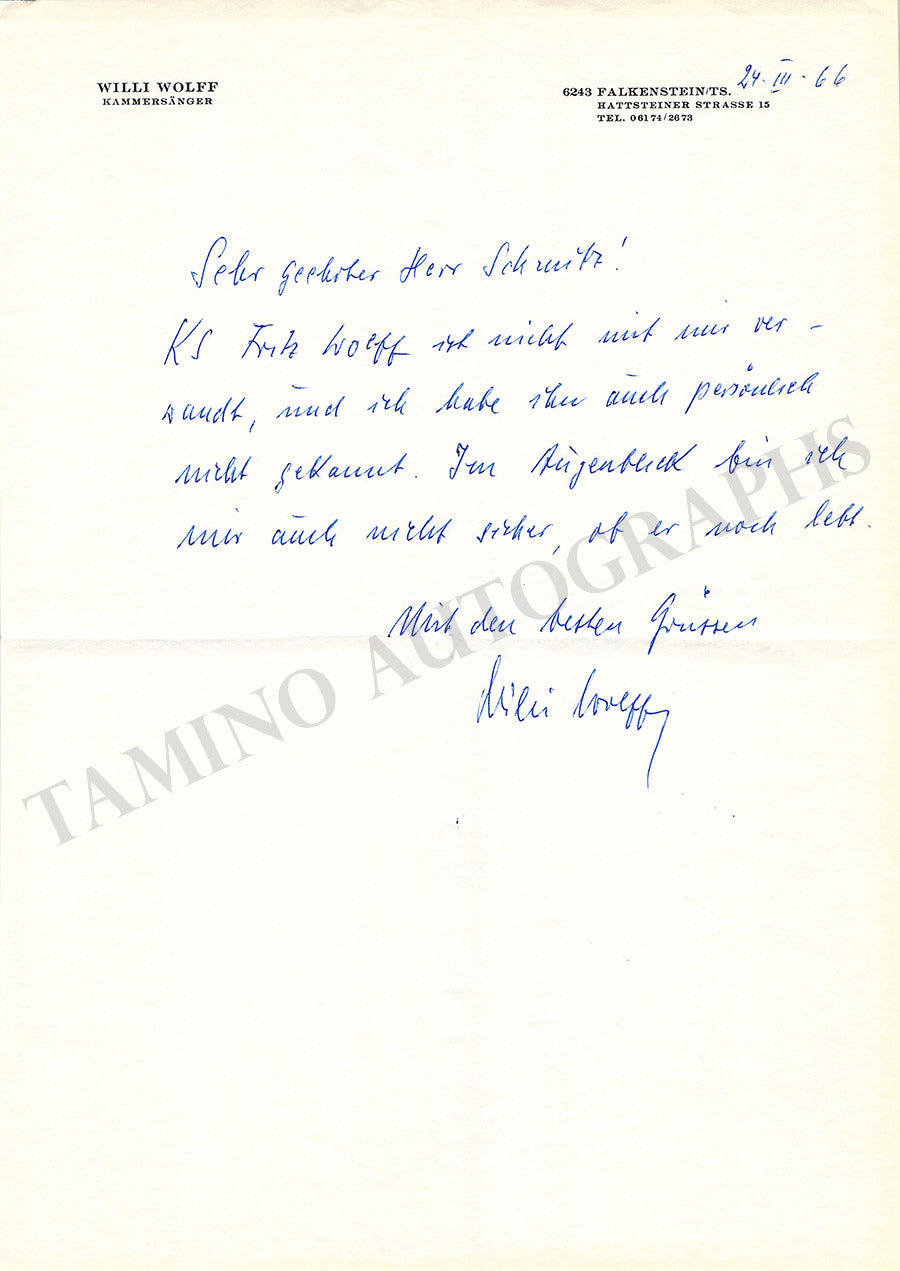 WILLI WOLFF
KAMMERSÄNGER
24. III. 66
6243 FALKENSTEIN/TS.
HATTSTEINER STRASSE 15
TEL. 06174/2673
Sehr geehrter Herr Schmitz!
KS Fritz Wolff ist nicht mit mir ver-
wandt, und ich habe ihn auch persönlich
nicht gekannt. Im Augenblick bin ich
mir auch nicht sicher, ob er noch lebt.
Mit den besten Grüssen
Willi Wolff
TAMINO AUTOGRAPHS